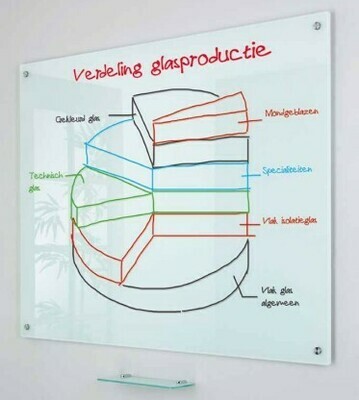 Verdeling glasproductie
Gekleurd glas
Mondgeblazen
Technisch
glas
Specialiteiten
Vlak isolatieglas
Vlak glas
algemeen